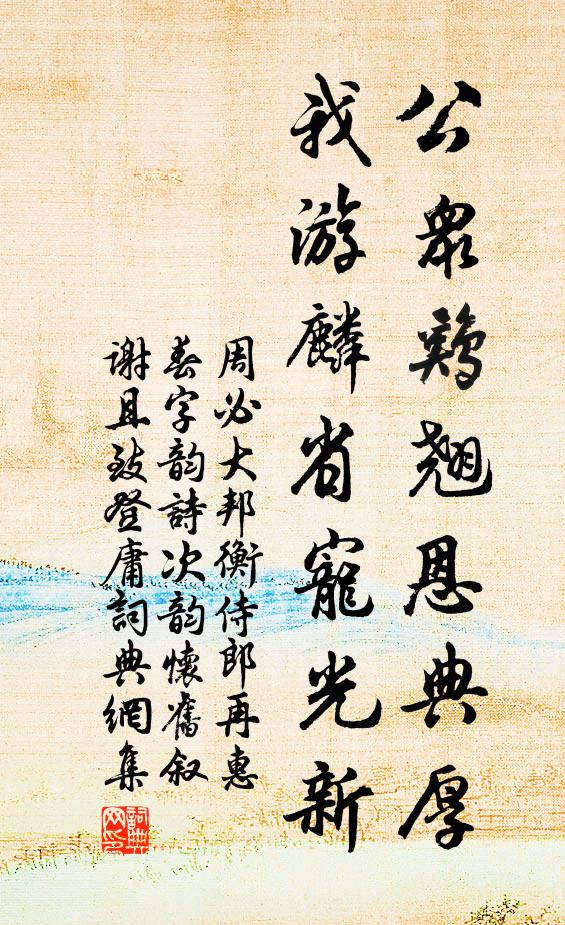 公眾鷄翹恩典厚
我游麟省寵光新
周必大邦衡侍郎再惠
春字韵詩次韵懷舊叙
謝且致登庸詞典網集
詞典网印